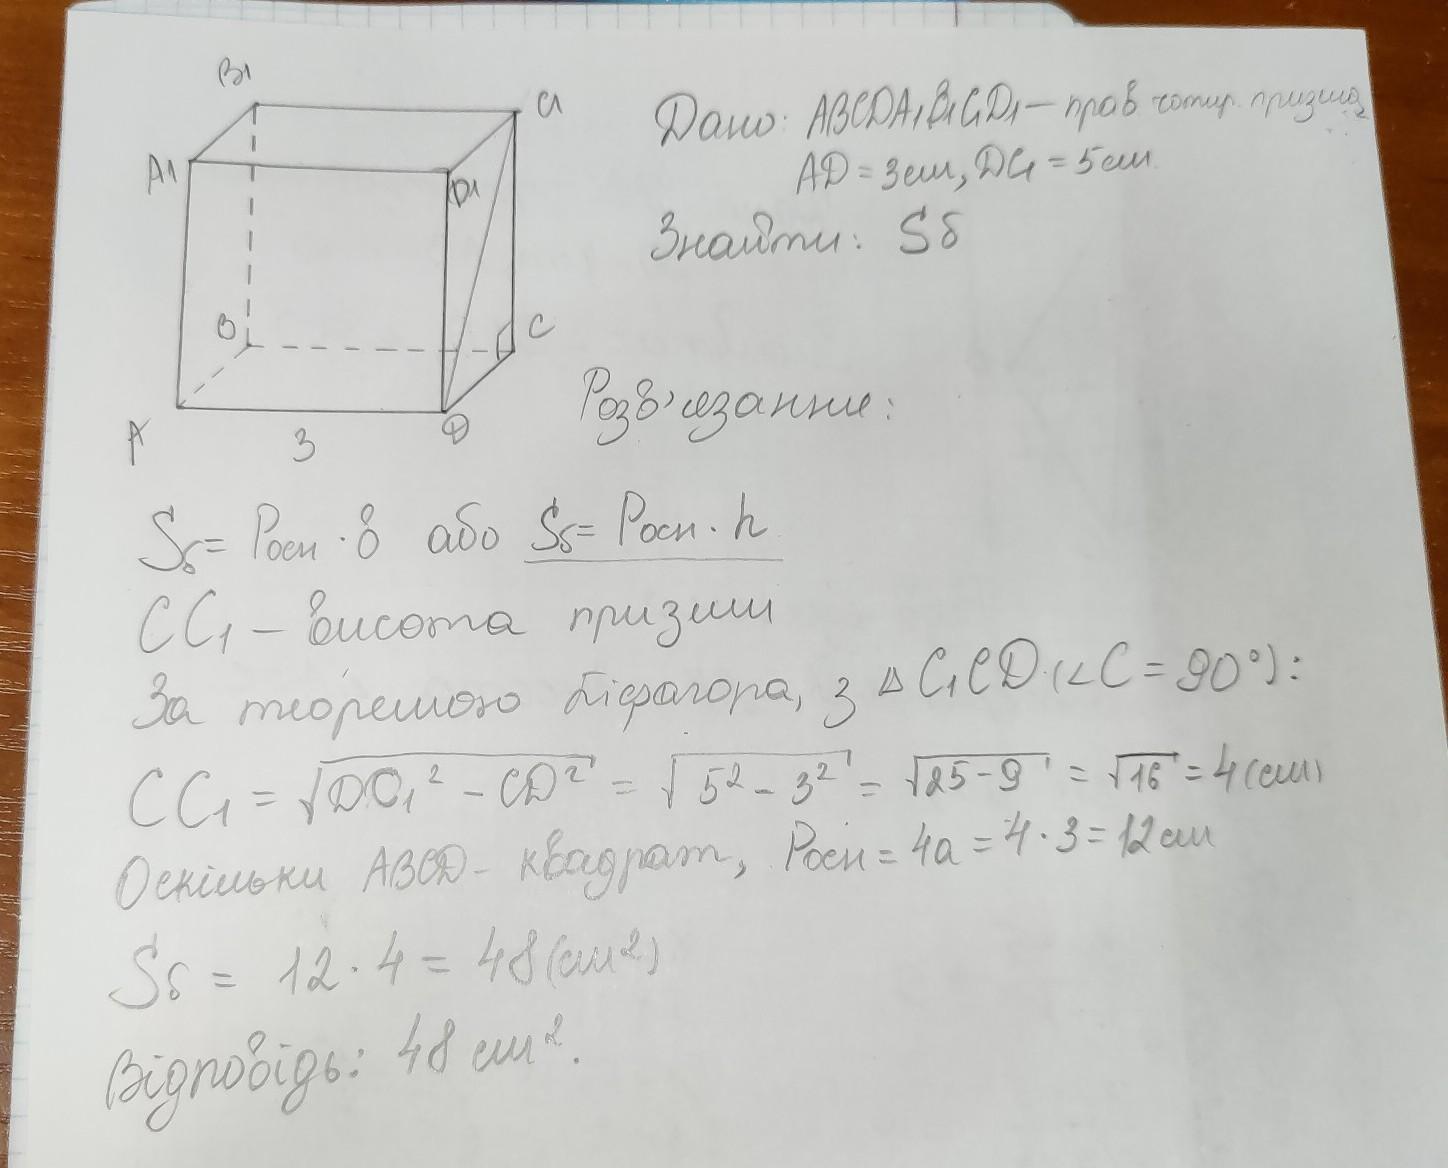 B1
C1
A1
D1
B
C
A
3
D
Дано: ABCDA1B1C1D1 – прав. чотир. призма,
AD = 3см, DC1 = 5см.
Знайти: Sб
Розв'язання:
Sб = Pосн · b або Sб = Pосн · h
CC1 – висота призми
За теоремою Піфагора, з △ C1CD (∠C = 90°):
CC1 = √DC1² – CD² = √5² – 3² = √25 – 9 = √16 = 4 (см)
Оскільки ABCD – квадрат, Pосн = 4a = 4 · 3 = 12 см
Sб = 12 · 4 = 48 (см²)
Відповідь: 48 см².